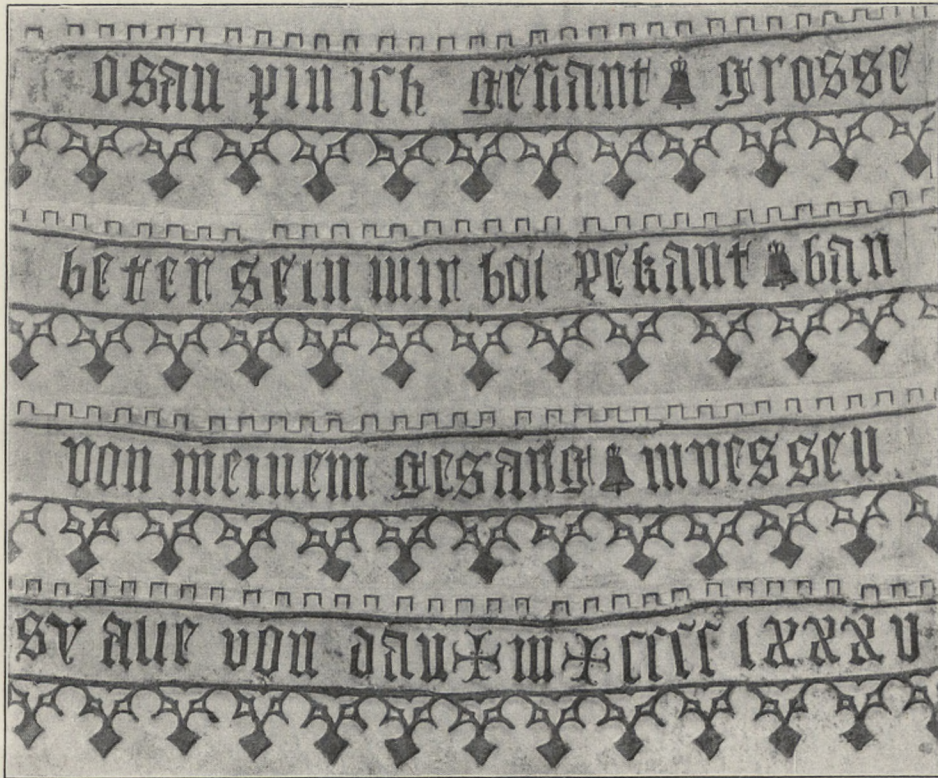 osau pin ich genant grosse
beter sein mir bol pekant ban
von meinem gesang mvessen
sy alle von dan m cccc lxxxv